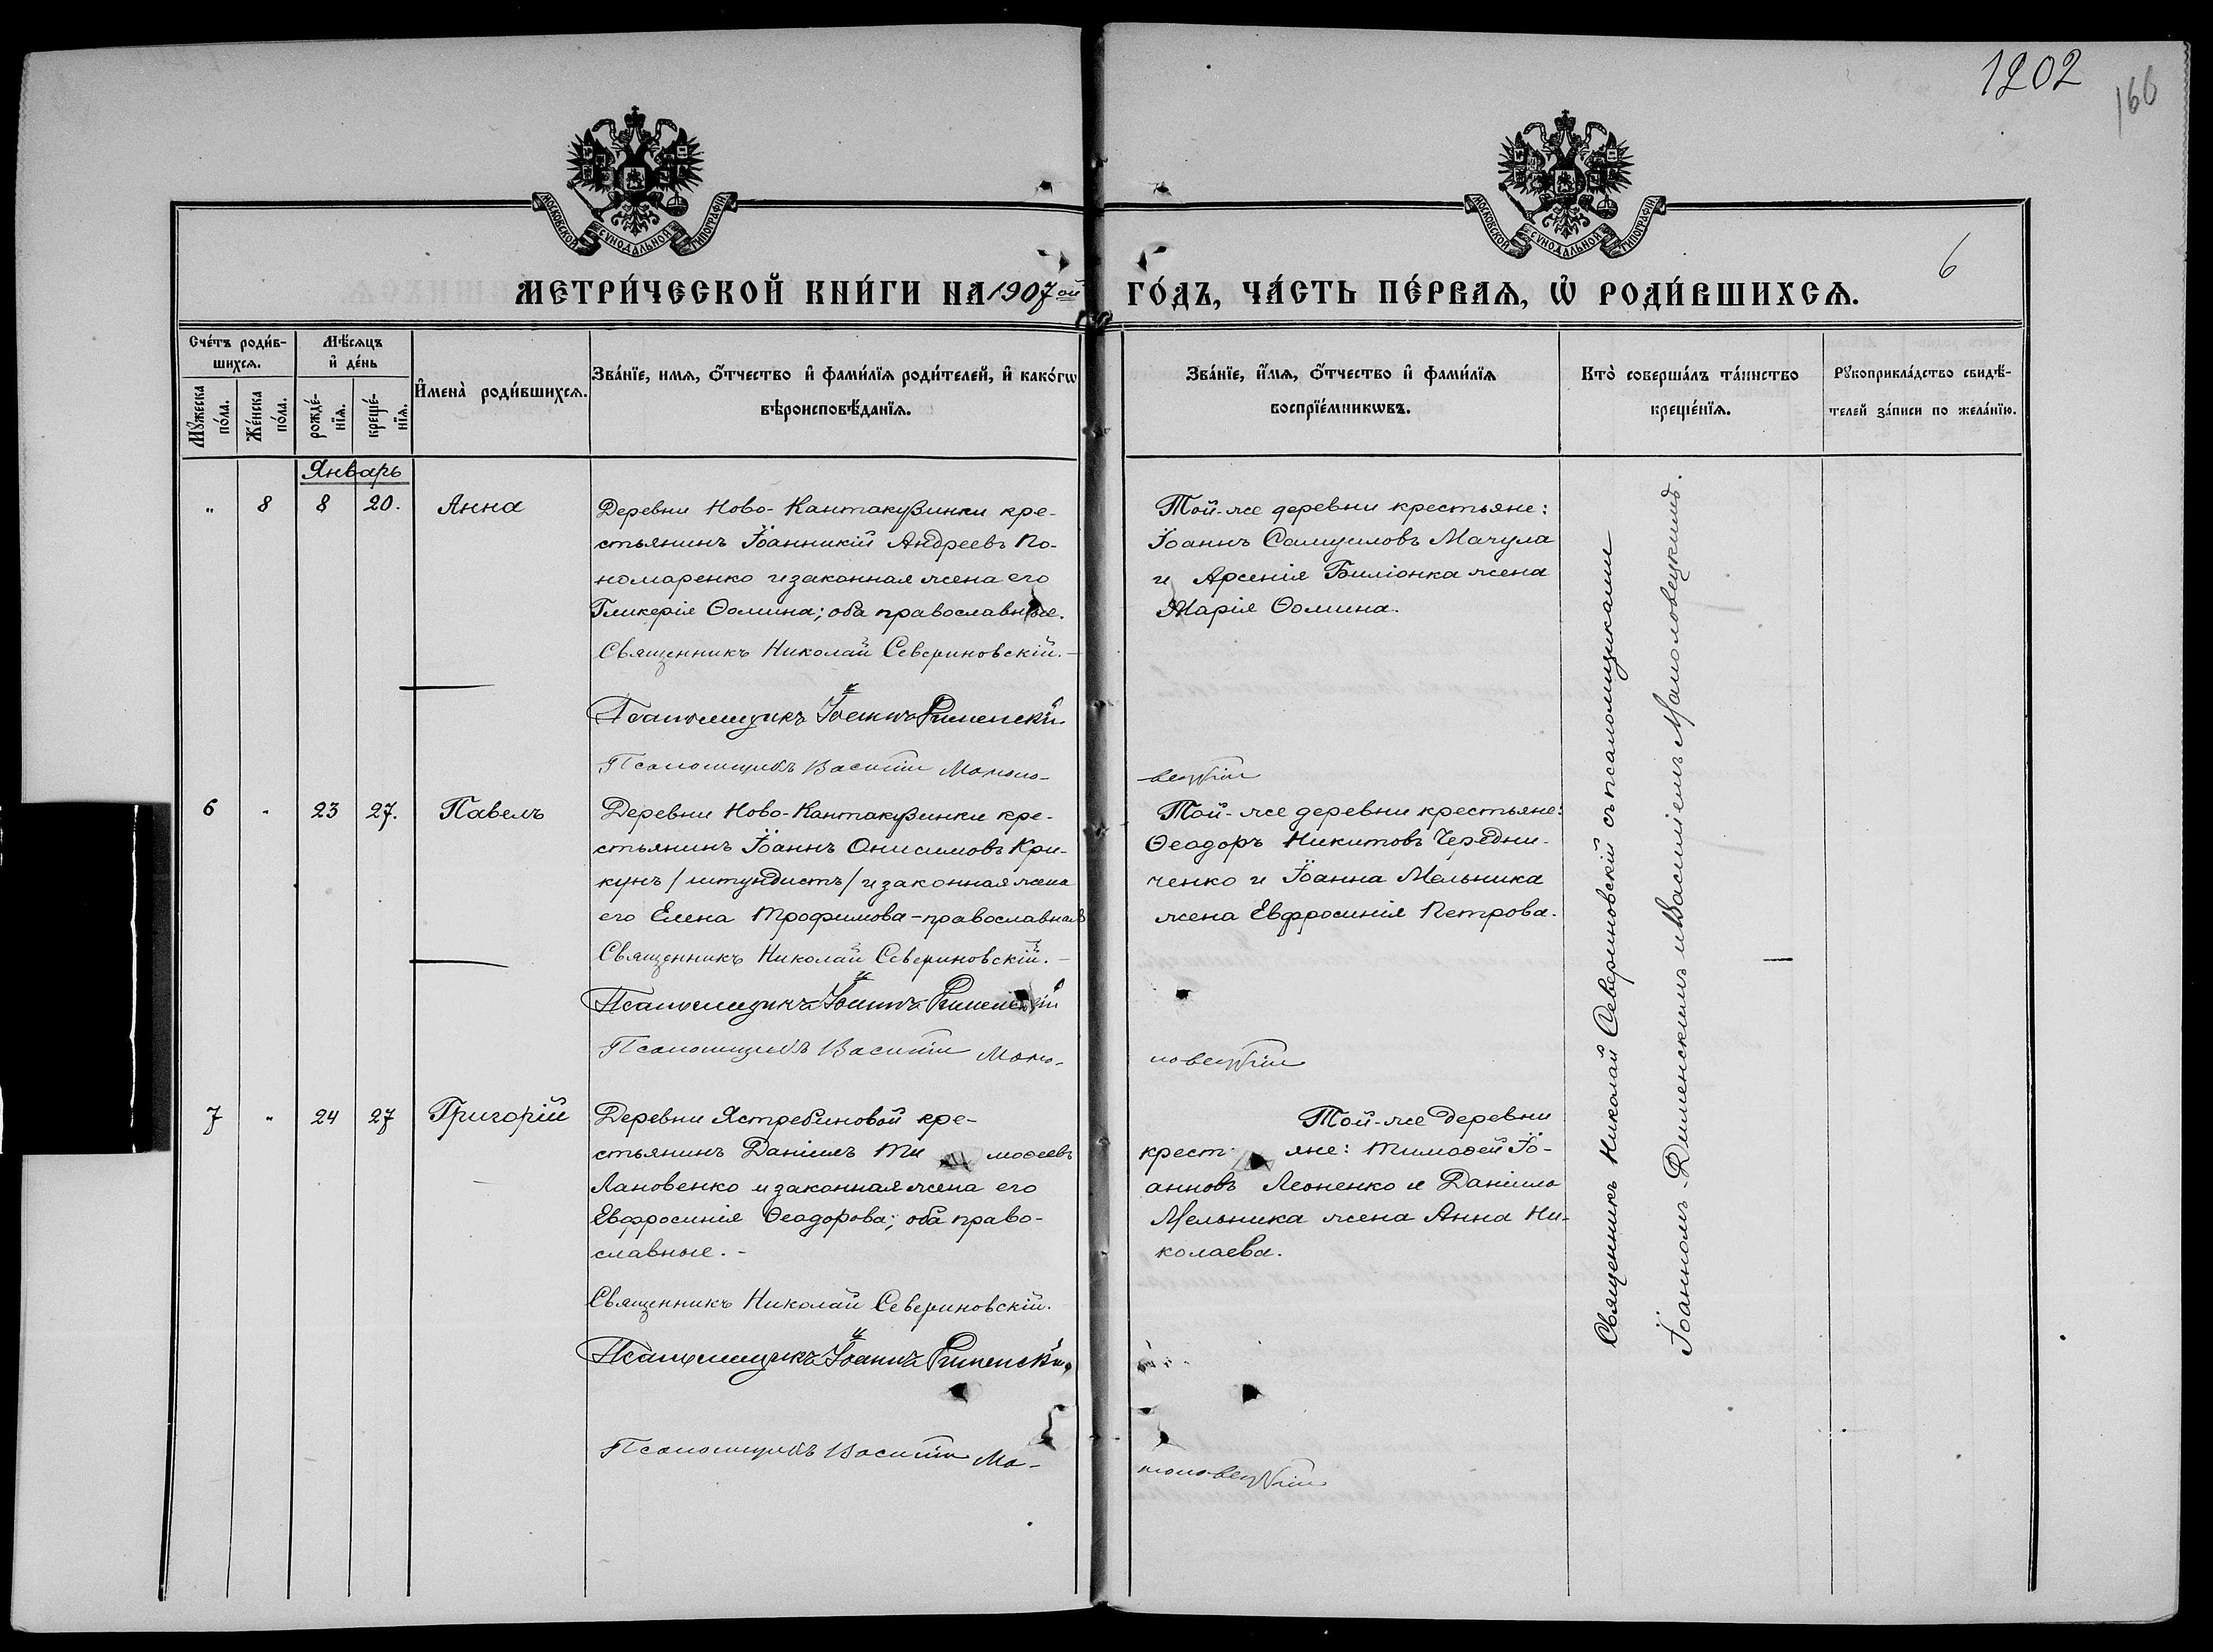 1202
166
6
МОСКОВСКОЙ СѴНОДАЛЬНОЙ ТИПОГРАФІИ
МОСКОВСКОЙ СѴНОДАЛЬНОЙ ТИПОГРАФІИ
МЕТРИ́ЧЕСКОЙ КНИ́ГИ НА 1907 ой ГО́ДЪ, ЧА́СТЬ ПЕ́РВАѦ, Ѡ҆ РОДИ́ВШИХСѦ.
Сче́тъ роди́в-
шихсѧ.
Мꙋ́жеска
по́ла.
Же́нска
по́ла.
Мѣ́сѧцъ
и҆ де́нь
рожде́-
нїѧ.
креще́-
нїѧ.
И҆мена̀ роди́вшихсѧ.
Зва́нїе, имѧ, ѻ҆́тчество и҆ фами́лїѧ роди́телей, и҆ како́гѡ
вѣроисповѣ́данїѧ.
Зва́нїе, и҆́мѧ, ѻ҆́тчество и҆ фами́лїѧ
воспрїе́мникѡвъ.
Кто̀ соверша́лъ та́инство
креще́нїѧ.
Рꙋкоприкла́дство свидѣ́-
телей за́писи по жела́нїю.
Январь
" 8 8 20. Анна
Деревни Ново-Кантакузинки кре-
стьянинъ Іоанникій Андреевъ По-
номаренко и законная жена его
Гликерія Ѳомина; оба православные.
Священникъ Николай Севериновскій.
Псаломщикъ Іоаннъ Рименскій
Псаломщикъ Василій Мамоло-
вецкій
Той-же деревни крестьяне:
Іоаннъ Самуиловъ Мачула
и Арсенія Билионка жена
Марія Ѳомина.
6 " 23 27. Павелъ
Деревни Ново-Кантакузинки кре-
стьянинъ Іоаннъ Онисимовъ Кри-
кунъ /штундистъ/ и законная жена
его Елена Трофимова-православная
Священникъ Николай Севериновскій.
Псаломщикъ Іоаннъ Рименскій
Псаломщикъ Василій Мамо-
ловецкій
Той-же деревни крестьяне:
Ѳеодоръ Никитовъ Чередни-
ченко и Іоанна Мельника
жена Евфросинія Петрова.
7 " 24 27 Григорій
Деревни Ястребиновой кре-
стьянинъ Даніилъ Ти моѳеевъ
Лановенко и законная жена его
Евфросинія Ѳеодорова; оба право-
славные.-
Священникъ Николай Севериновскій.
Псаломщикъ Іоаннъ Рименскій
Псаломщикъ Василій Ма-
моловецкій
Той-же деревни
крест яне: Тимоѳей Іо-
анновъ Леоненко и Даніила
Мельника жена Анна Ни-
колаева.
Священникъ Николай Севериновскій съ псаломщиками
Іоанномъ Рименскимъ и Василіемъ Мамоловецкимъ.